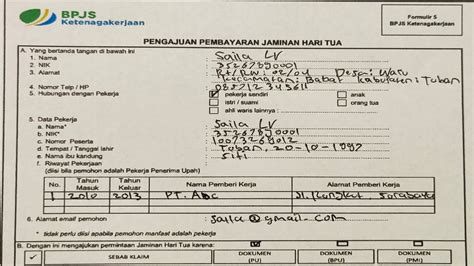 BPJS
Ketenagakerjaan
Formulir 5
BPJS Ketenagakerjaan
PENGAJUAN PEMBAYARAN JAMINAN HARI TUA
A. Yang bertanda tangan di bawah ini
1. Nama : Saila LV
2. NIK : 35267890001
3. Alamat : Rt/Rw: 02/04 Desa: Watu
Kecamatan: Babat Kabupaten: Tuban
4. Nomor Telp / HP : 085712345611
5. Hubungan dengan Pekerja : pekerja sendiri anak
istri / suami orang tua
ahli waris lainnya :
5. Data Pekerja
a. Nama* : Saila LV
b. NIK* : 35267890001
c. Nomor Peserta : 10073269012
d. Tempat / Tanggal lahir : Tuban, 20-10-1997
e. Nama ibu kandung : Siti
f. Riwayat Pekerjaan :
(diisi bila pemohon adalah Pekerja Penerima Upah)
No. Tahun Masuk Tahun Keluar Nama Pemberi Kerja Alamat Pemberi Kerja
1 2010 2013 PT. ABC Jl. Surabaya
6. Alamat email pemohon : saila@gmail.com
* tidak perlu diisi apabila pemohon adalah pekerja sendiri
B. Dengan ini mengajukan permintaan Jaminan Hari Tua karena:
✓ SEBAB KLAIM DOKUMEN (BPU) DOKUMEN (PU) DOKUMEN (PMI)